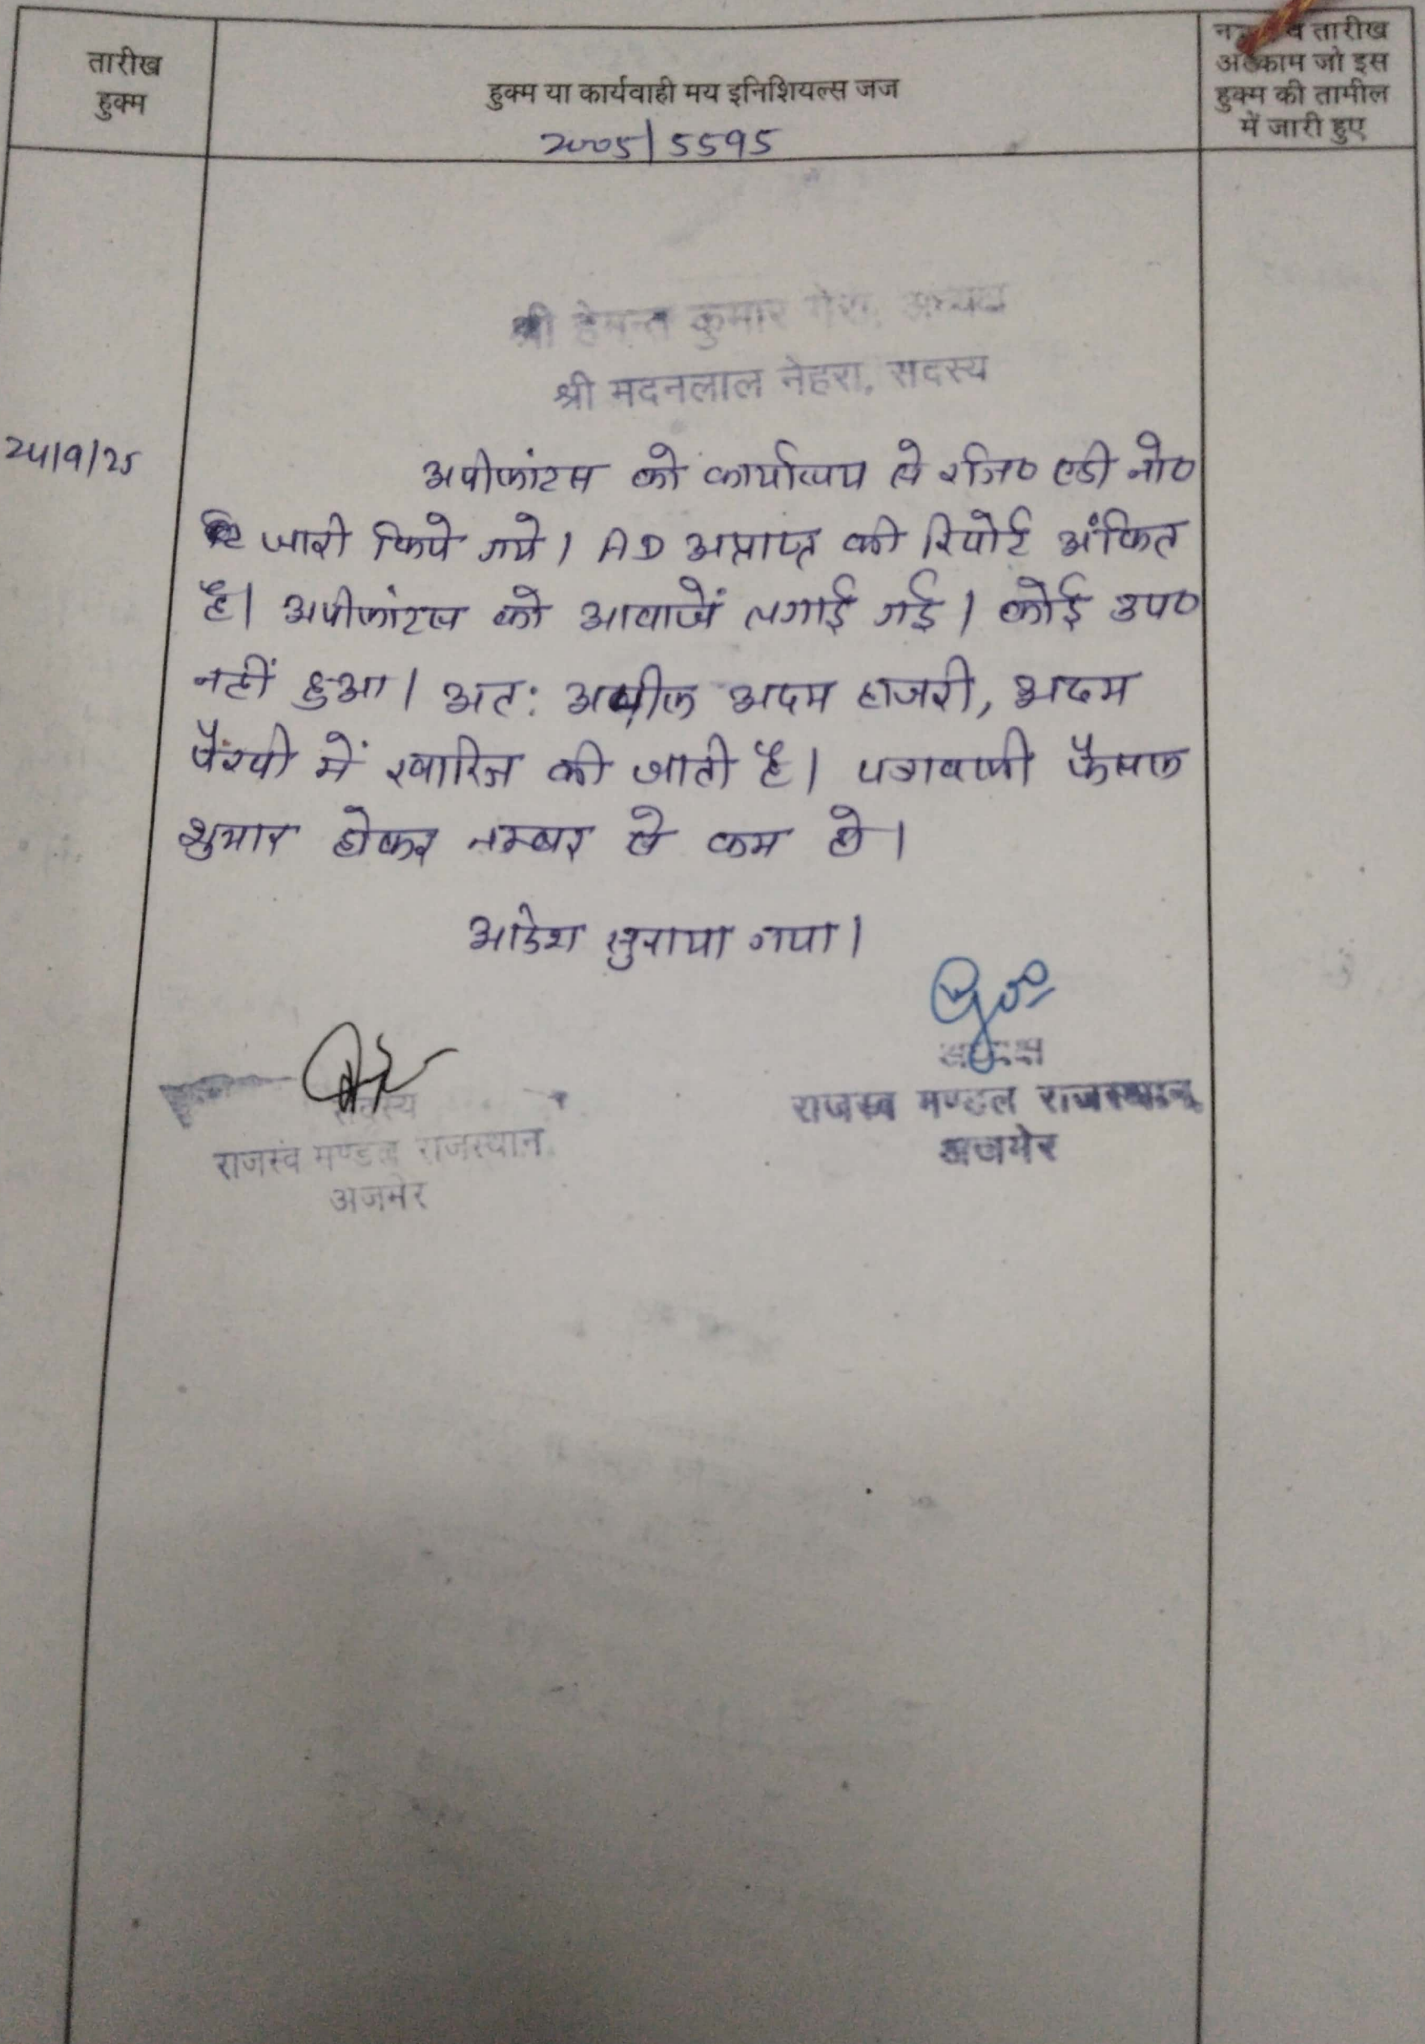 तारीख
हुक्म
हुक्म या कार्यवाही मय इनिशियल्स जज
2005/5595
तारीख
अहकाम जो इस
हुक्म की तामील
में जारी हुए
श्री हेमन्त कुमार गेरा, अध्यक्ष
श्री मदनलाल नेहरा, सदस्य
24/9/25
अपीलांटस को कार्यालय से रजि० एडी नो०
जारी किये गये। AD अप्राप्त की रिपोर्ट अंकित
है। अपीलांटस को आवाजें लगाई गई। कोई उप०
नहीं हुआ। अत: अपील अदम हाजरी, अदम
पैरवी में खारिज की जाती है। पत्रावली फैसल
शुमार होकर नम्बर से कम हो।
आदेश सुनाया गया।
सदस्य
राजस्व मण्डल राजस्थान,
अजमेर
अध्यक्ष
राजस्व मण्डल राजस्थान,
अजमेर